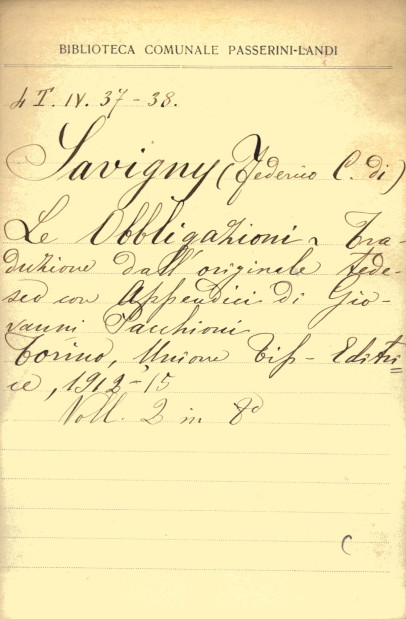 BIBLIOTECA COMUNALE PASSERINI-LANDI
4 T. IV. 37-38.
Savigny (Federico C. di)
Le Obbligazioni. Tra-
duzione dall'originale tede-
sco con Appendici di Gio-
vanni Pacchioni
Torino, Unione Tip-Editri=
ce, 1912-15
Voll. 2 in 8°
C